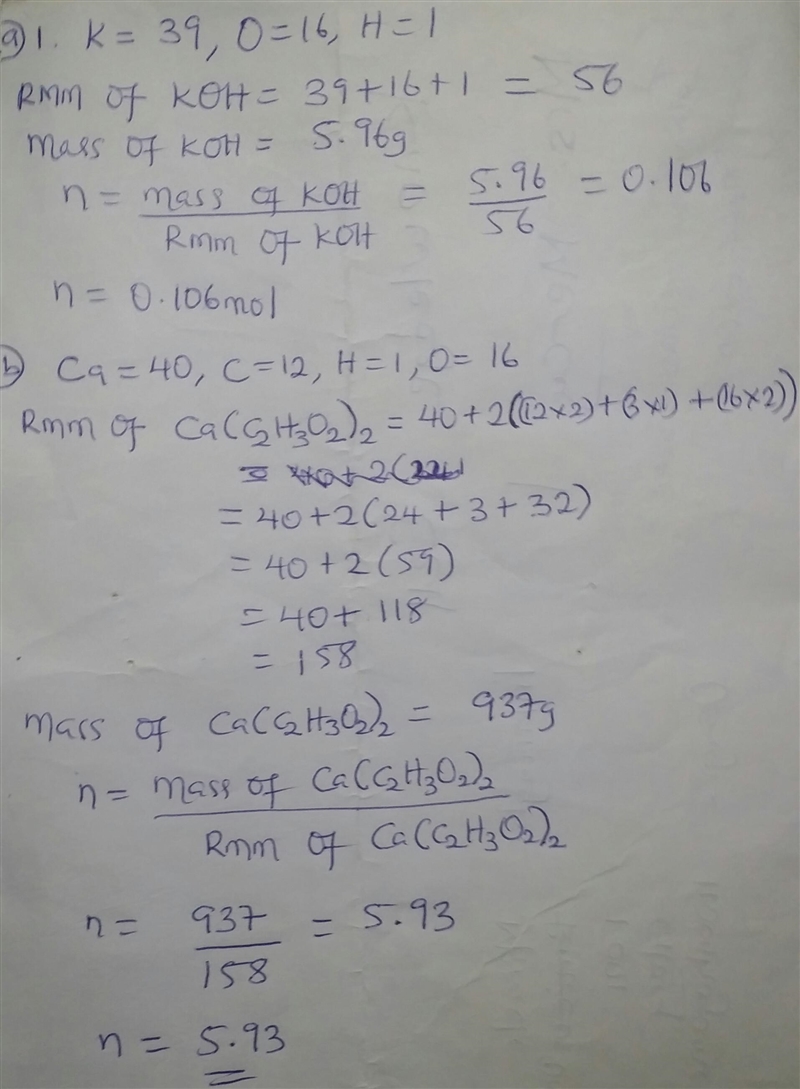 a) 1. K = 39, O=16, H=1
RMM OF KOH = 39+16+1 = 56
Mass OF KOH = 5.96g
n = mass of KOH / Rmm OF KOH = 5.96 / 56 = 0.106
n = 0.106mol
b) Ca = 40, C=12, H=1, O= 16
Rmm OF Ca(C2H3O2)2 = 40+2((12×2)+(3×1)+(16×2))
= 40+2(224
= 40+2(24+3+32)
= 40+2(59)
= 40+ 118
= 158
Mass OF Ca(C2H3O2)2 = 937g
n = Mass of Ca(C2H3O2)2 / Rmm OF Ca(C2H3O2)2
n = 937 / 158 = 5.93
n = 5.93